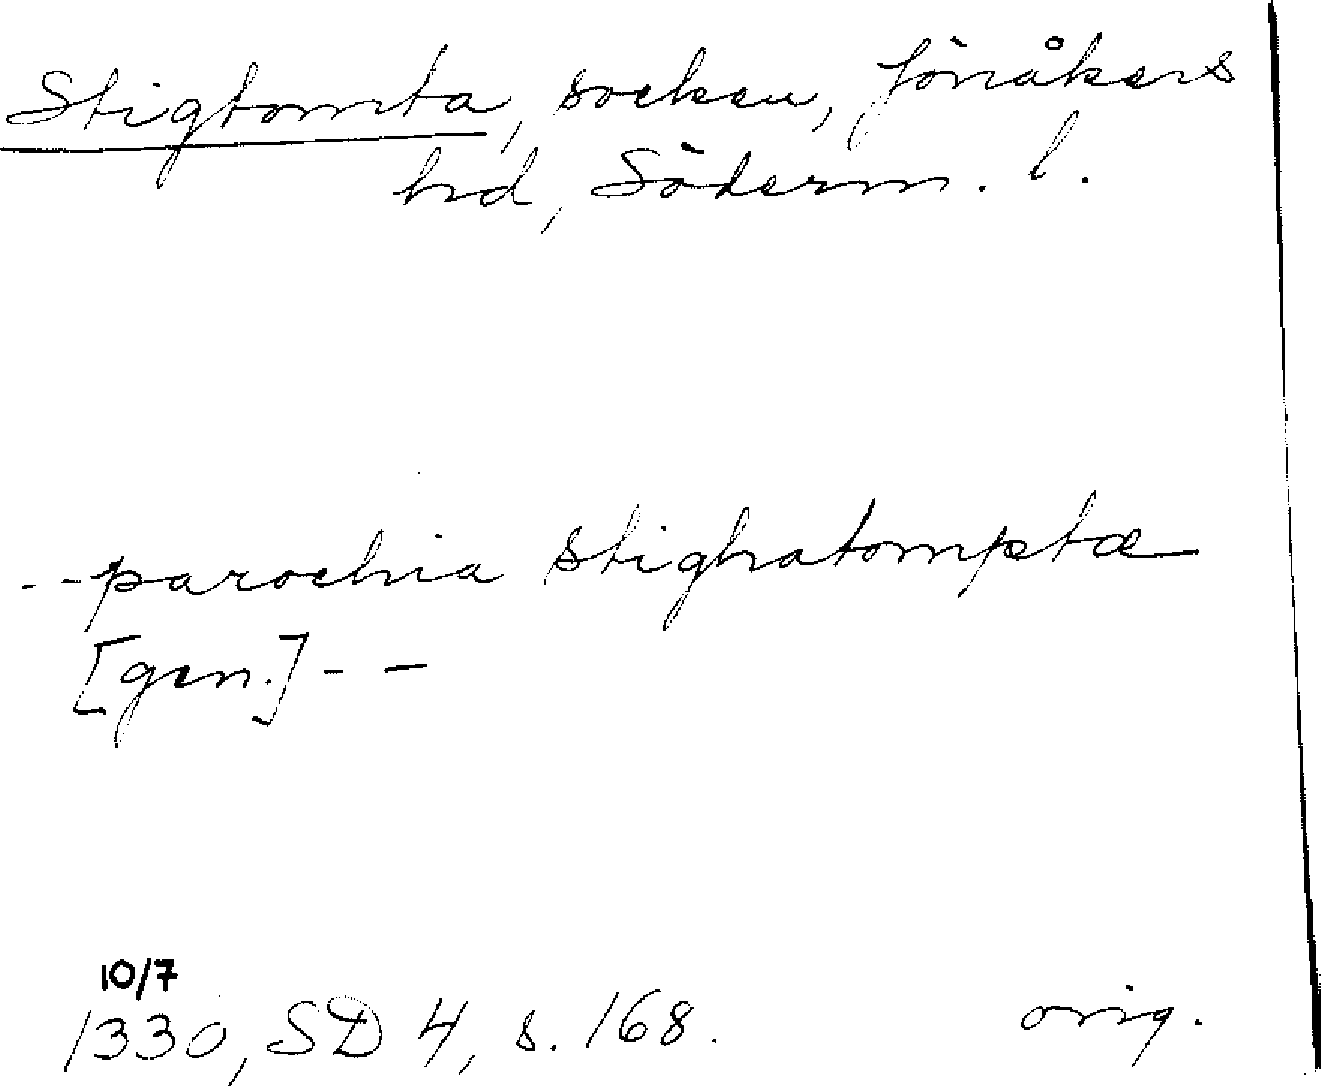 Stigtomta, socken, Jönåkers
hd, Söderm. l.
--parochia stighatomptæ
[gen.]--
10/7
1330, SD 4, s. 168. orig.